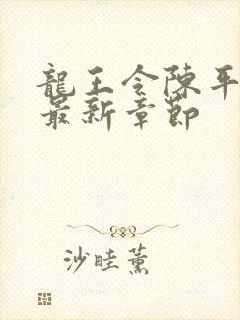 龍王令陳平
最新章節
沙畦薰